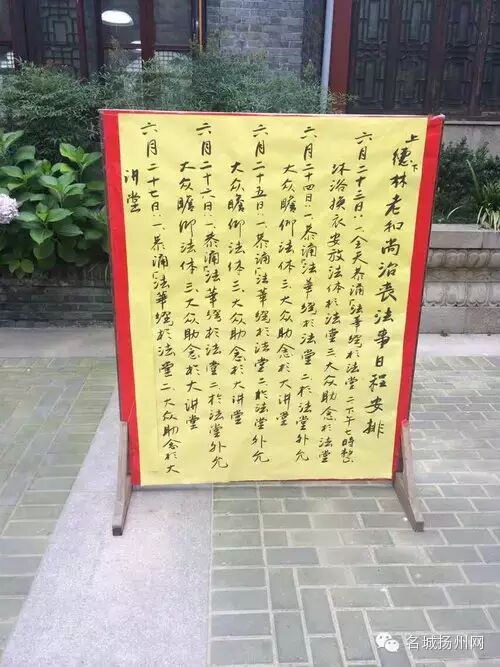 上德下林老和尚治丧法事日程安排
六月二十三日：一、全天恭诵《法华经》於法堂 二、下午七時整
沐浴换衣安放法体於法堂 三、大众助念於法堂
六月二十四日：一、恭诵《法华经》於法堂 二、於法堂外允
大众瞻仰法体 三、大众助念於大讲堂
六月二十五日：一、恭诵《法华经》於法堂 二、於法堂外允
大众瞻仰法体 三、大众助念於大讲堂
六月二十六日：一、恭诵《法华经》於法堂 二、於法堂外允
大众瞻仰法体 三、大众助念於大讲堂
六月二十七日：一、恭诵《法华经》於法堂 二、大众助念於大
讲堂
名城扬州网